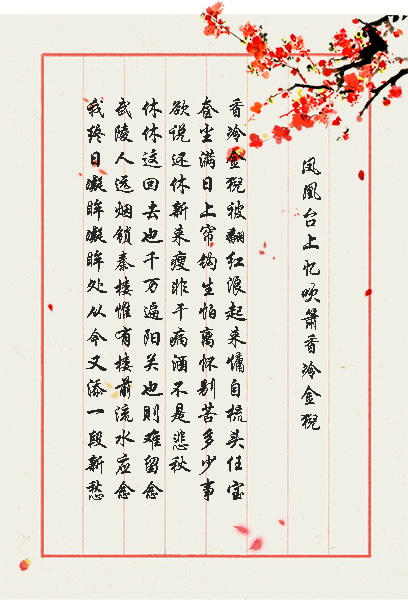 凤凰台上忆吹箫香冷金猊
香冷金猊被翻红浪起来慵自梳头任宝
奁尘满日上帘钩生怕离怀别苦多少事
欲说还休新来瘦非干病酒不是悲秋
休休这回去也千万遍阳关也则难留念
武陵人远烟锁秦楼惟有楼前流水应念
我终日凝眸凝眸处从今又添一段新愁